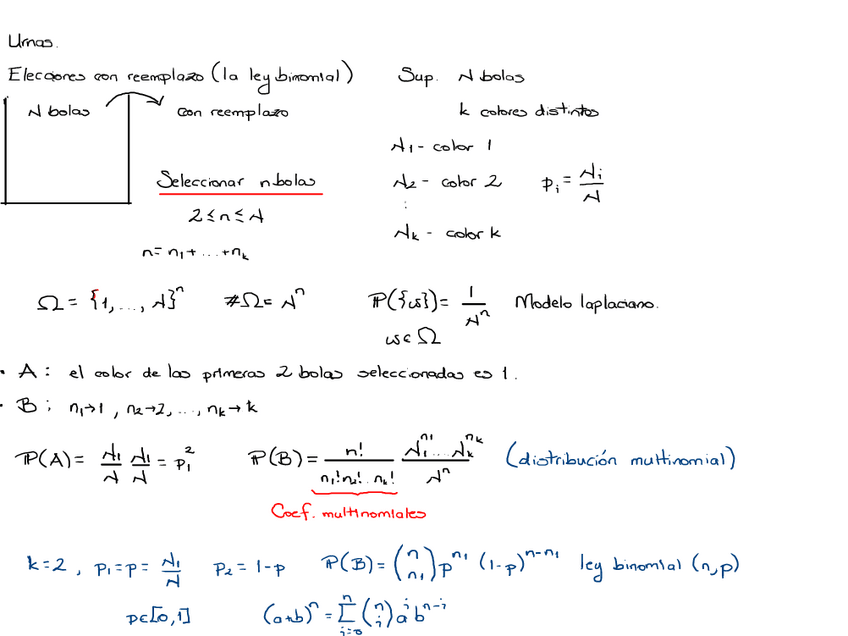 Urnas.
Elecciones con reemplazo (la ley binomial)
N bolas
con reemplazo
Seleccionar n bolas
2 ≤ n ≤ N
n = n₁ + ... + nₖ
Sup. N bolas
k colores distintos
N₁ - color 1
N₂ - color 2
⋮
Nₖ - color k
pᵢ = Nᵢ/N
Ω = {1, ..., N}ⁿ #Ω = Nⁿ ℙ({ω}) = 1/Nⁿ Modelo laplaciano.
ω ∈ Ω
• A : el color de las primeras 2 bolas seleccionadas es 1.
• B : n₁→1 , n₂→2, ..., nₖ→k
ℙ(A) = N₁/N N₁/N = p₁² ℙ(B) = n!/(n₁! n₂! ... nₖ!) N₁^n₁ ... Nₖ^nₖ / Nⁿ (distribución multinomial)
Coef. multinomiales
k=2 , p₁ = p = N₁/N p₂ = 1-p ℙ(B) = (n n₁) p^n₁ (1-p)^(n-n₁) ley binomial (n,p)
p∈[0,1] (a+b)ⁿ = Σ_{i=0}^{n} (n i) aⁱ bⁿ⁻ⁱ